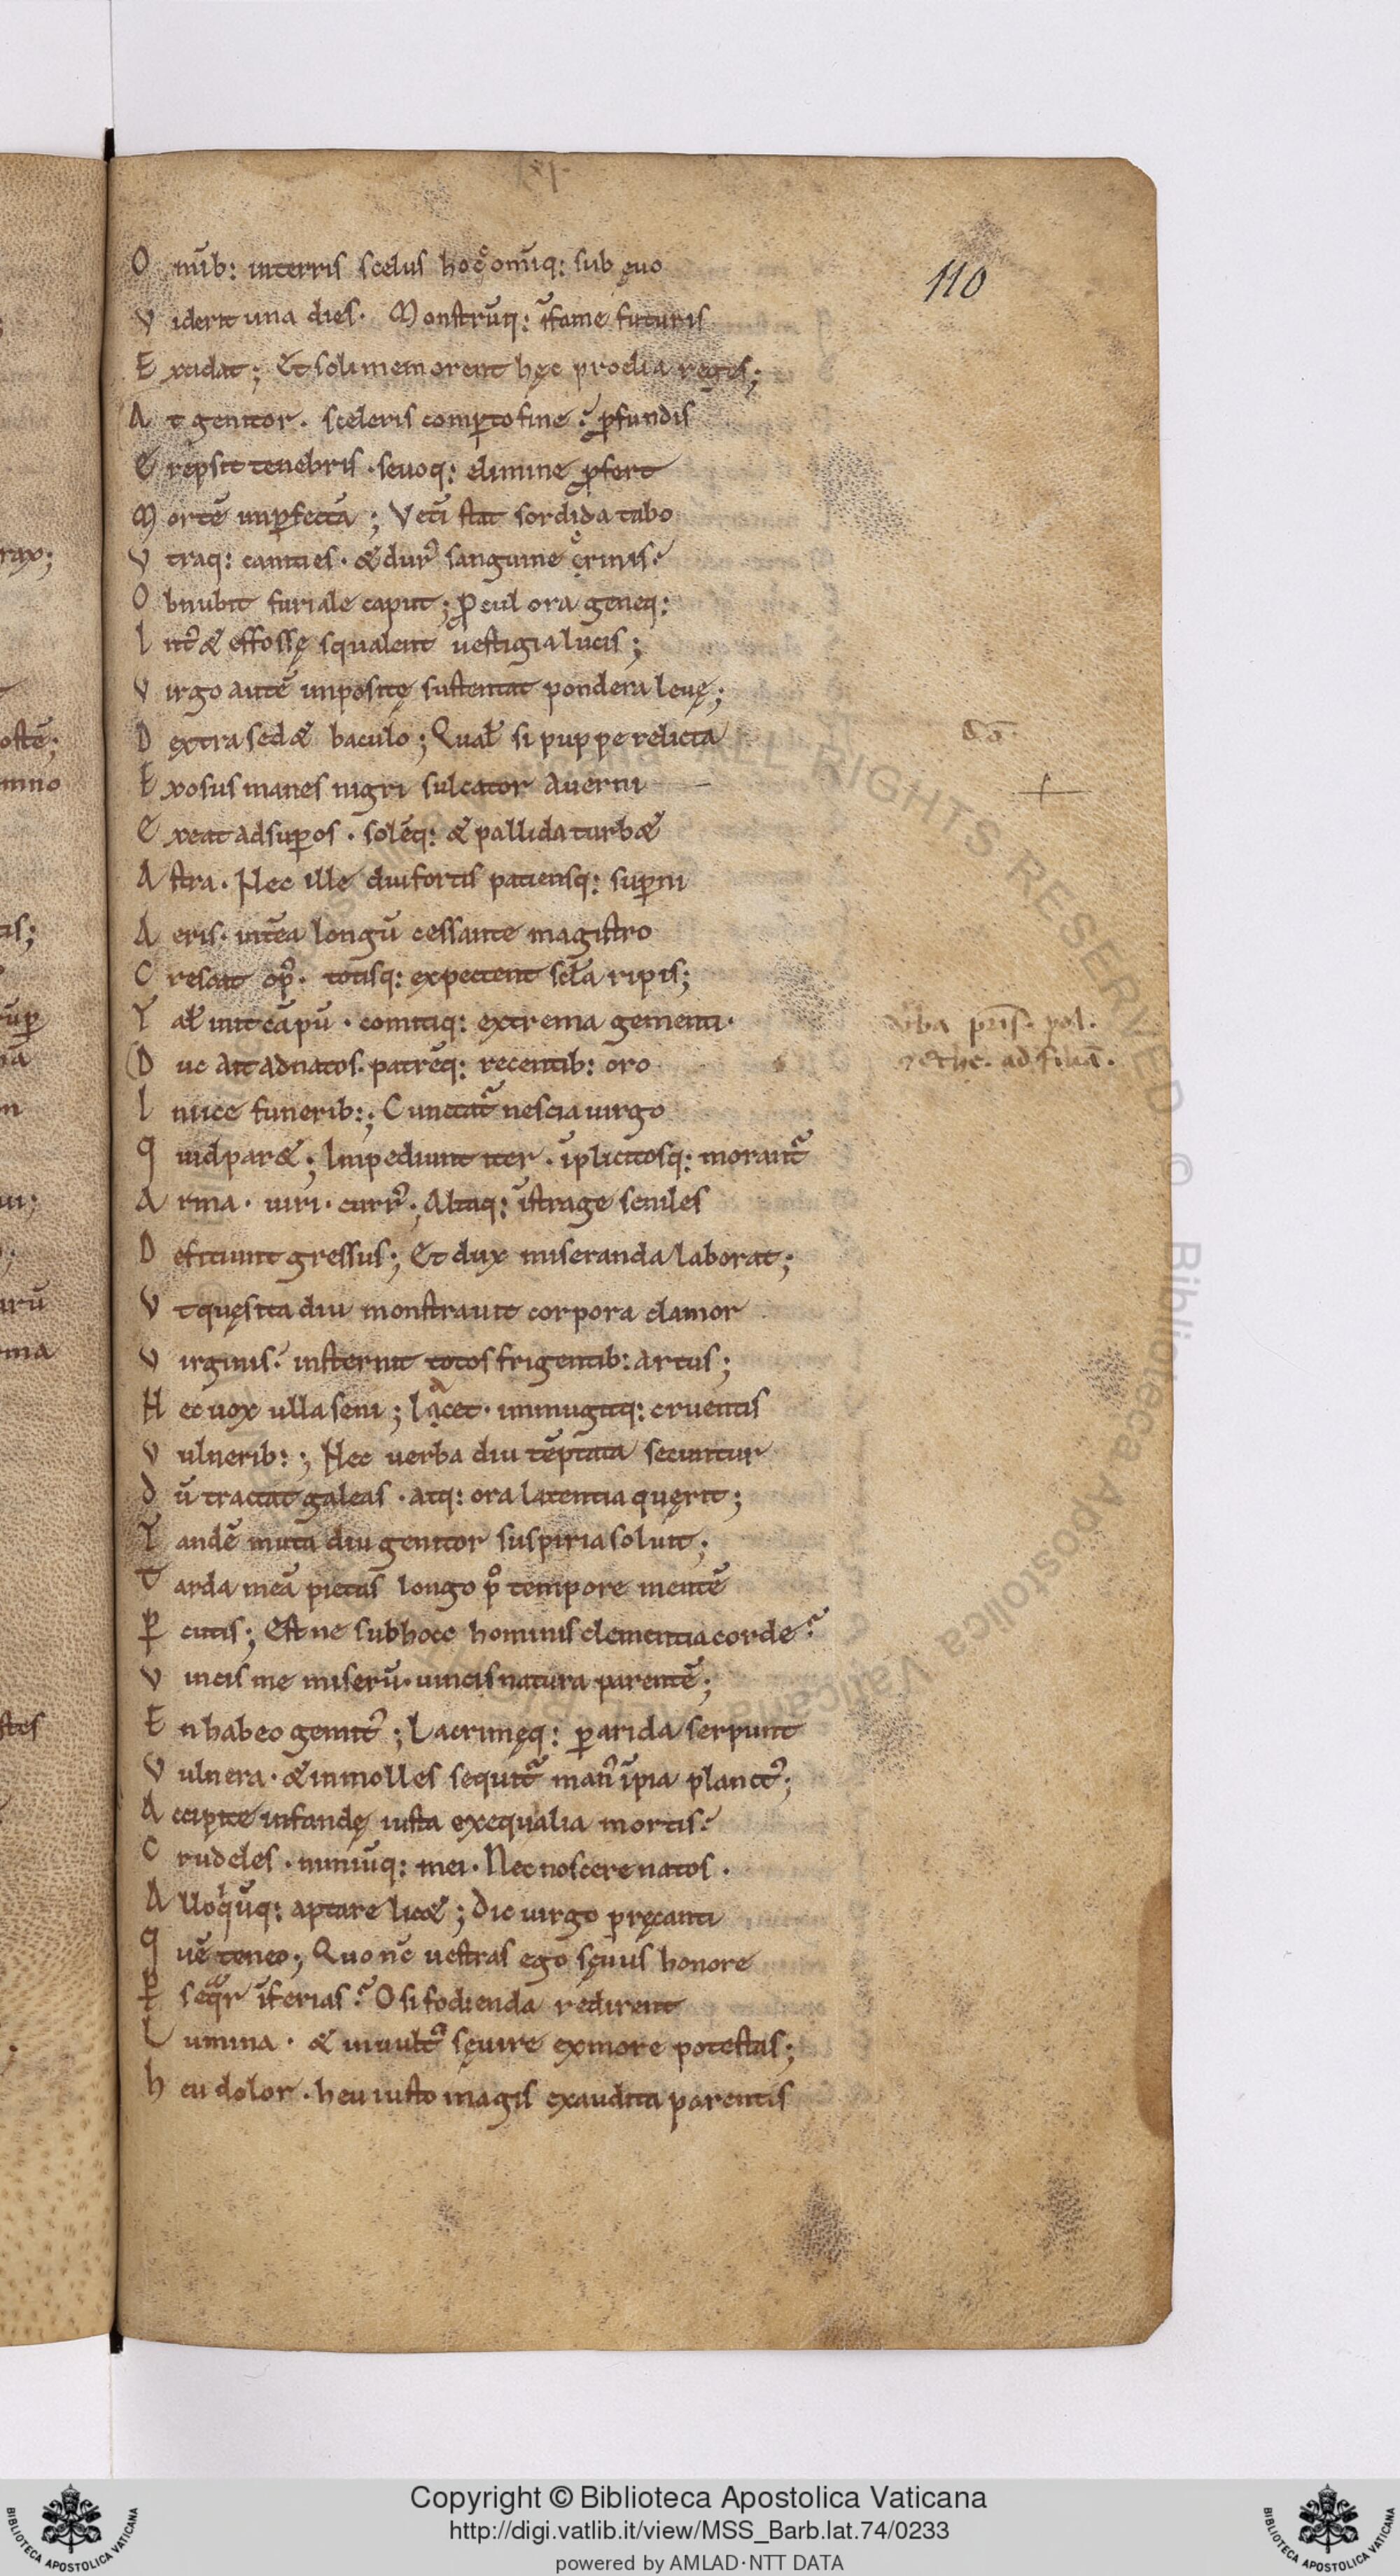 110
O mīb: interris scelus hoc omīq: sub ęuo
V iderit una dies. Monstrūq: īfame futuris
E xcidat; Et soli memorent hęc proelia reges;
A t genitor. sceleris comꝑto fine. ꝓfundis
E repsit tenebris. seuoq: elimine ꝓfert
M ortē imꝑfectā; Vetī stat sordida tabo
V traq: canities. & dur᾽ sanguine crinis
O bnubit furiale caput; ꝓcul ora geneq:
I nt᾽& effossę squalent uestigia lucis;
V irgo autē imposite sustentat pondera leuę;
D extra sed& baculo; Qual̄ si puppe relicta
E xosus manes nigri sulcator auerni
E xeat ad suꝑos. solēq: & pallida turb&
A stra. Nec ille diu fortis patiensq: suꝑni
A eris. intēa longū cessante magistro
C rescat op᾽. totisq: expectent scl̄a ripis;
T al̄ init cāpū. comitiq: extrema gementi.
D uc ait ad natos. patrēq: recentib: oro
I niice funerib:; Cunctat᾽ nescia uirgo
Q uid par&; Impediunt iter. īplicitosq: morant᾽
A rma. uiri. curr᾽; Altaq: īstrage seniles
D eficiunt gressus; Et dux miseranda laborat;
V t quęsita diu monstrauit corpora clamor
V irginis. insternit totos frigentib: artus;
N ec uox ulla seni; Iacet. immugitq: cruentis
V ulnerib:; Nec uerba diu tēptata secuntur
D ū tractat galeas. atq: ora latentia quęrit;
T andē muta diu genitor suspiria soluit;
T arda meā pietas longo p᾽ tempore mentē
ꝑ cutis; Estne sub hocc hominis clementia corde
V incis me miserū. uincis natura parentē;
E n habeo gemit᾽; Lacrimęq: ꝑ arida serpunt
V ulnera. & in molles sequit᾽ man᾽ īpia planct᾽;
A ccipite infandę iusta exequalia mortis
C rudeles. nimiūq: mei. Nec noscere natos.
A lloqūq: aptare lic&; Dic uirgo pręcanti
Q uē teneo; Quo nc̄ uestras ego sęuus honore
ꝑ seqr īferias. O si fodienda redirent
L umina. & in uult᾽ sęuire ex more potestas;
H eu dolor. heu iusto magis exaudita parentis